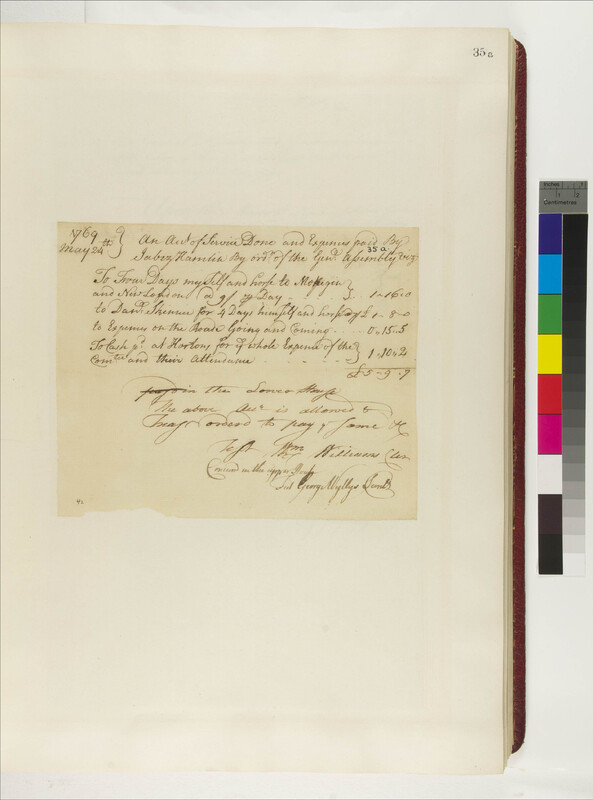 35a
1769
May 24th } An Acct of Service Done and Expences paid By
35 a
Jabez Hamlin By ordr of the Genll Assembly viz
To Four Days my Self and horse to Mohegen
and New London @ 9/ pr Day } 1-16-0
to Danl Skinner for 4 Days himself and horse @ 7/ 1-8-0
to Expences on the Roade Going and Coming 0-15-5
To Cash pd at Hortons for ye whole Expence of the
Comtee and their Attendance } 1-10-2
£5-9-7
in the Lower House
The above Acct is allowed &
Treasr orderd to pay ye Same &c
Test Wm Williams Cler
Concurrd in the upper House
Test George Wyllys Secret